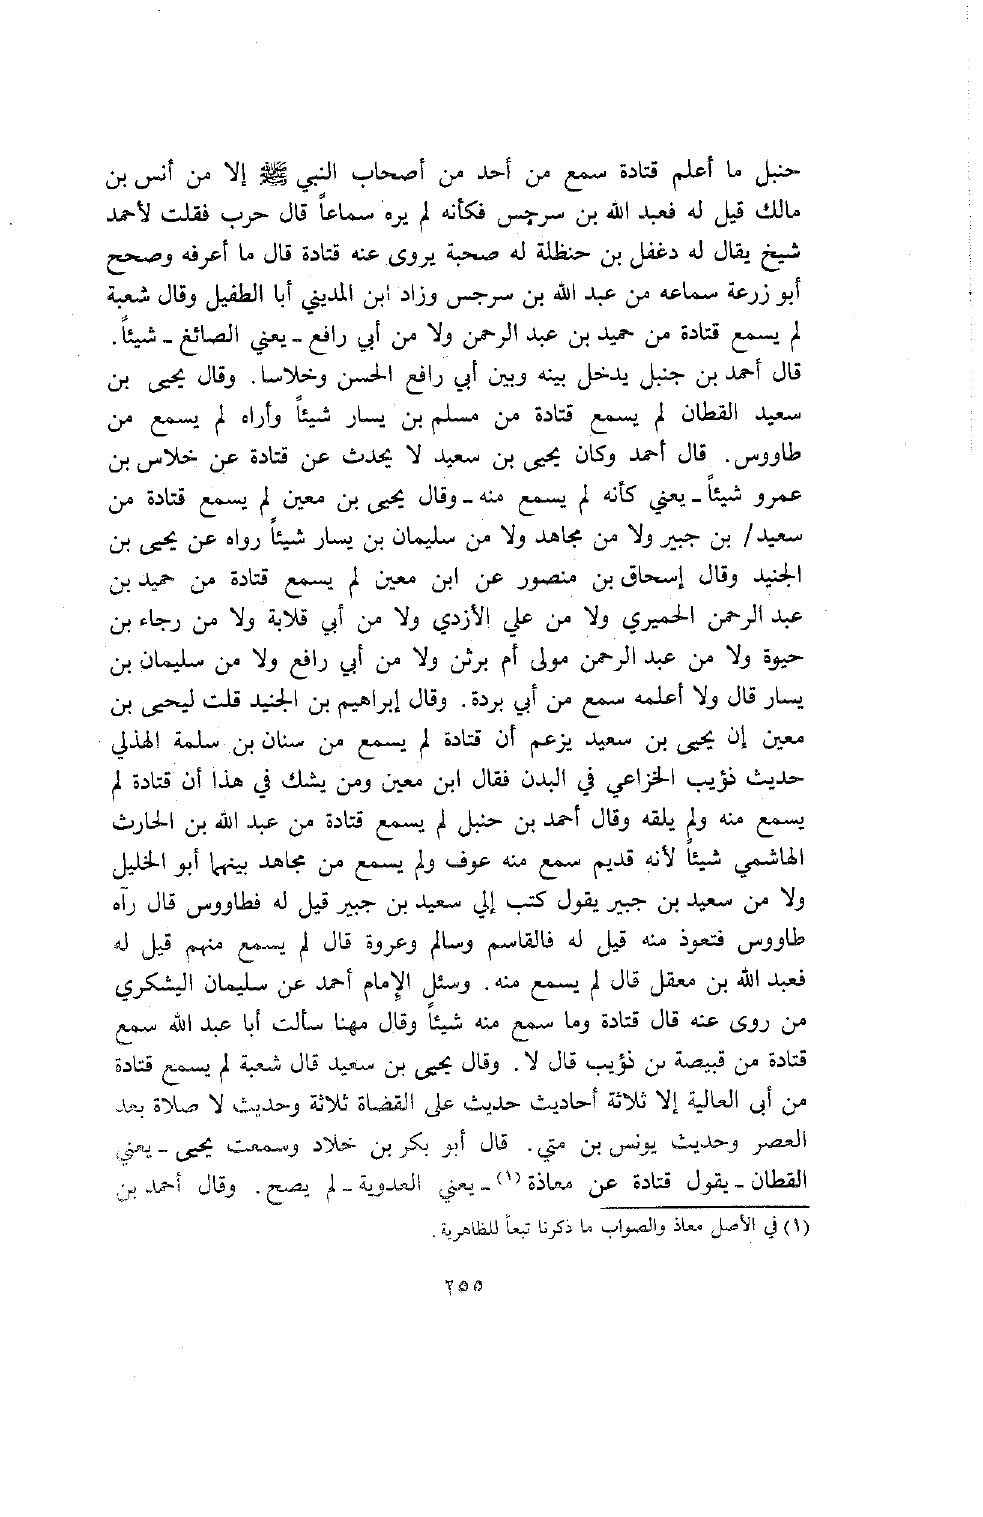 حنبل ما أعلم قتادة سمع من أحد من أصحاب النبي ﷺ إلا من أنس بن
مالك قيل له فعبد الله بن سرجس فكأنه لم يره سماعاً قال حرب فقلت لأحمد
شيخ يقال له دغفل بن حنظلة له صحبة يروى عنه قتادة قال ما أعرفه وصحح
أبو زرعة سماعه من عبد الله بن سرجس وزاد ابن المديني أبا الطفيل وقال شعبة
لم يسمع قتادة من حميد بن عبد الرحمن ولا من أبي رافع ـ يعني الصائغ ـ شيئاً.
قال أحمد بن جنبل يدخل بينه وبين أبي رافع الحسن وخلاسا. وقال يحيى بن
سعيد القطان لم يسمع قتادة من مسلم بن يسار شيئاً وأراه لم يسمع من
طاووس. قال أحمد وكان يحيى بن سعيد لا يحدث عن قتادة عن خلاس بن
عمرو شيئاً ـ يعني كأنه لم يسمع منه ـ وقال يحيى بن معين لم يسمع قتادة من
سعيد/ بن جبير ولا من مجاهد ولا من سليمان بن يسار شيئاً رواه عن يحيى بن
الجنيد وقال إسحاق بن منصور عن ابن معين لم يسمع قتادة من حميد بن
عبد الرحمن الحميري ولا من على الأزدي ولا من أبي قلابة ولا من رجاء بن
حيوة ولا من عبد الرحمن مولى أم برثن ولا من أبي رافع ولا من سليمان بن
يسار قال ولا أعلمه سمع من أبي بردة. وقال إبراهيم بن الجنيد قلت ليحيى بن
معين إن يحيى بن سعيد يزعم أن قتادة لم يسمع من سنان بن سلمة الهذلي
حديث ذؤيب الخزاعي في البدن فقال ابن معين ومن يشك في هذا أن قتادة لم
يسمع منه ولم يلقه وقال أحمد بن حنبل لم يسمع قتادة من عبد الله بن الحارث
الهاشمي شيئاً لأنه قديم سمع منه عوف ولم يسمع من مجاهد بينهما أبو الخليل
ولا من سعيد بن جبير يقول كتب إلي سعيد بن جبير قيل له فطاووس قال رآه
طاووس فتعوذ منه قيل له فالقاسم وسالم وعروة قال لم يسمع منهم قيل له
فعبد الله بن معقل قال لم يسمع منه. وسئل الإمام أحمد عن سليمان اليشكري
من روى عنه قال قتادة وما سمع منه شيئاً وقال مهنا سألت أبا عبد الله سمع
قتادة من قبيصة بن ذؤيب قال لا. وقال يحيى بن سعيد قال شعبة لم يسمع قتادة
من أبى العالية إلا ثلاثة أحاديث حديث على القضاة ثلاثة وحديث لا صلاة بعد
العصر وحديث يونس بن متي. قال أبو بكر بن خلاد وسمعت يحيى ـ يعني
القطان ـ يقول قتادة عن معاذة (١) ـ يعني العدوية ـ لم يصح. وقال أحمد بن
(١) في الأصل معاذ والصواب ما ذكرنا تبعاً للظاهرية.
٢٥٥